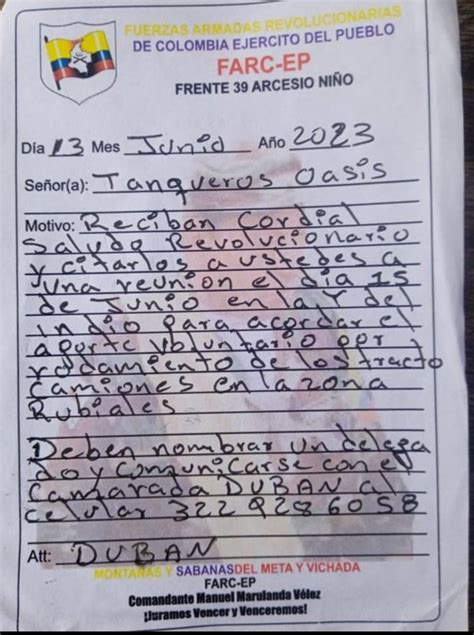 FUERZAS ARMADAS REVOLUCIONARIAS
DE COLOMBIA EJERCITO DEL PUEBLO
FARC-EP
FRENTE 39 ARCESIO NIÑO
Día 13 Mes Junio Año 2023
Señor(a): Tanqueros Oasis
Motivo: Reciban Cordial
Saludo Revolucionario
y citarlos a ustedes a
una reunion el dia 15
de Junio en la Y del
indio para acordar el
aporte voluntario por
rodamiento de los tracto
camiones en la zona
Rubiales
Deben nombrar un delega
do y comunicarse con el
Camarada DUBAN al
celular 322 923 6058
Att: DUBAN
MONTAÑAS Y SABANASDEL META Y VICHADA
FARC-EP
Comandante Manuel Marulanda Vélez
¡Juramos Vencer y Venceremos!